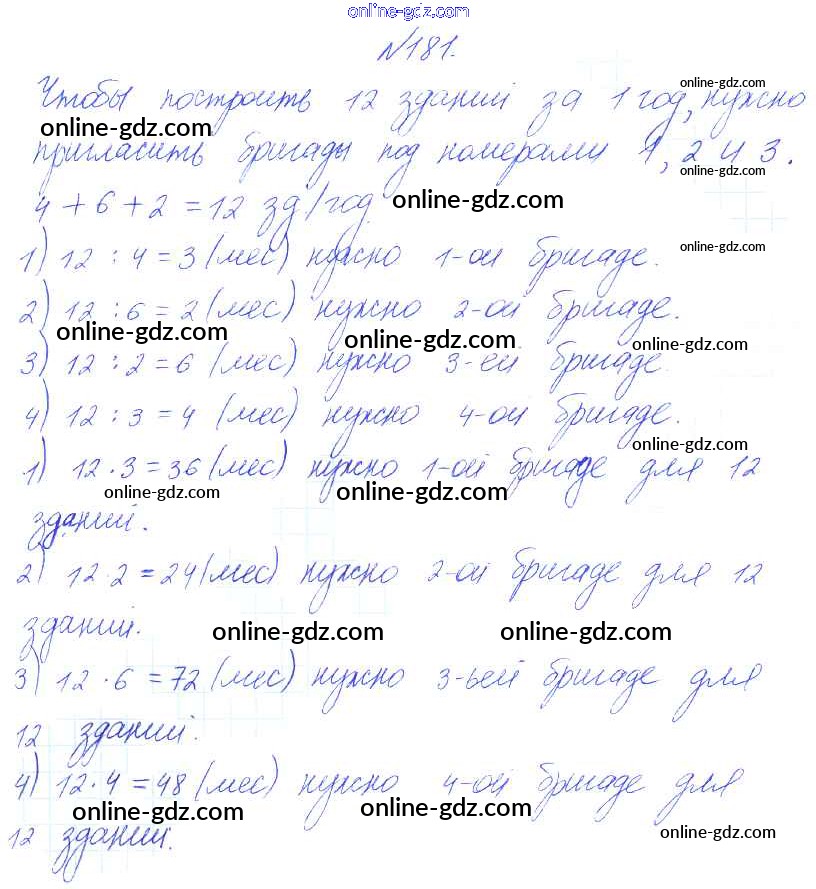 online-gdz.com
№181.
online-gdz.com
Чтобы построить 12 зданий за 1 год, нужно
online-gdz.com
online-gdz.com
пригласить бригады под номерами 1, 2 и 3.
online-gdz.com
4 + 6 + 2 = 12 зд/год
online-gdz.com
1) 12 : 4 = 3 (мес) нужно 1-ой бригаде.
online-gdz.com
2) 12 : 6 = 2 (мес) нужно 2-ой бригаде.
online-gdz.com online-gdz.com online-gdz.com
3) 12 : 2 = 6 (мес) нужно 3-ей бригаде.
4) 12 : 3 = 4 (мес) нужно 4-ой бригаде.
online-gdz.com
1) 12 · 3 = 36 (мес) нужно 1-ой бригаде для 12
online-gdz.com online-gdz.com online-gdz.com
зданий.
2) 12 · 2 = 24 (мес) нужно 2-ой бригаде для 12
зданий.
online-gdz.com online-gdz.com
3) 12 · 6 = 72 (мес) нужно 3-ьей бригаде для
12 зданий.
4) 12 · 4 = 48 (мес) нужно 4-ой бригаде для
online-gdz.com online-gdz.com
12 зданий.
online-gdz.com